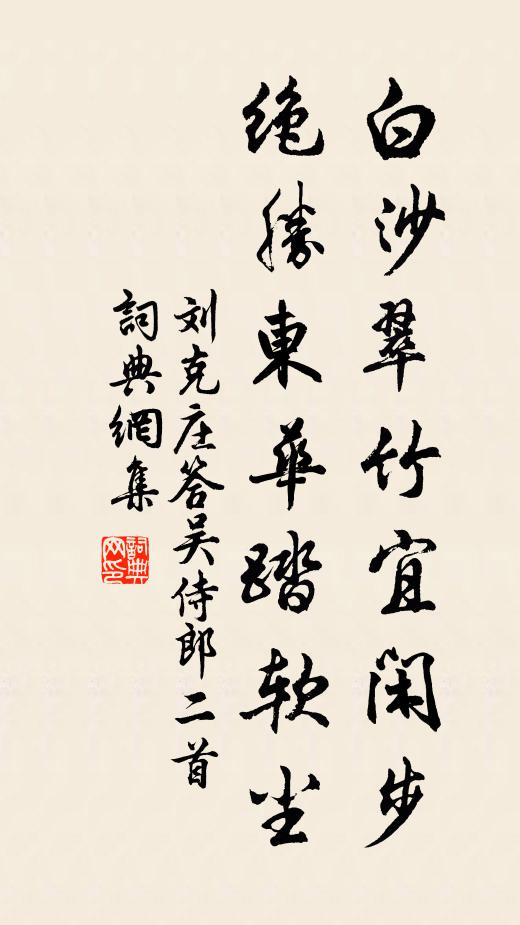 白沙翠竹宜閑步
绝勝東華踏软尘
刘克庄答吴侍郎二首
詞典網集
詞典網印